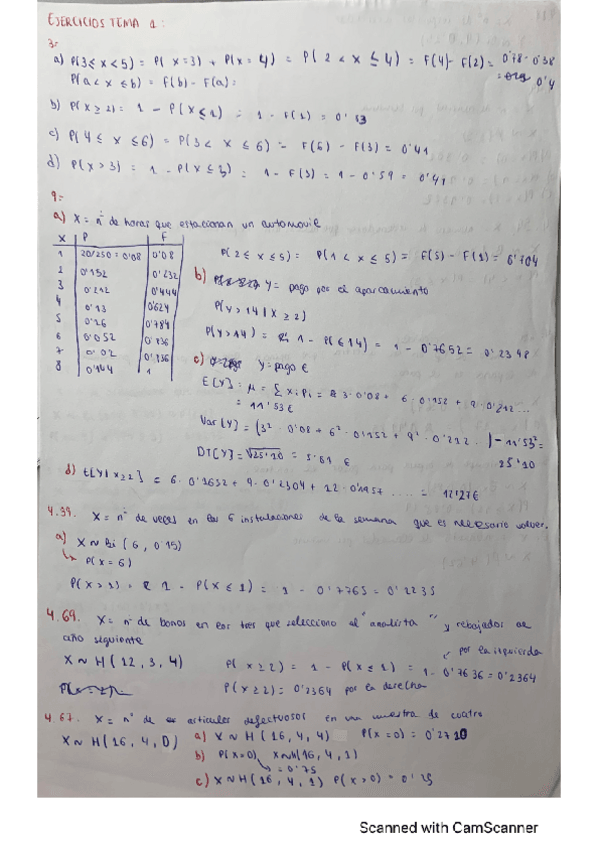 EJERCICIOS TEMA 1:
3:
a) P(3 ≤ x < 5) = P(x=3) + P(x=4) = P(2 < x ≤ 4) = F(4) - F(2) = 0'78 - 0'38
P(a < x ≤ b) = F(b) - F(a) = 0'4
b) P(x ≥ 2) = 1 - P(x ≤ 1) = 1 - F(1) = 0'53
c) P(4 ≤ x ≤ 6) = P(3 < x ≤ 6) = F(6) - F(3) = 0'41
d) P(x > 3) = 1 - P(x ≤ 3) = 1 - F(3) = 1 - 0'59 = 0'41
9=
a) X = nº de horas que estacionan un automovil
X P F
1 20/250 = 0'08 0'08
2 0'152 0'232
3 0'212 0'444
4 0'624
5 0'16 0'784
6 0'052
7 0'02
8 1
P(2 ≤ x ≤ 5) = P(1 < x ≤ 5) = F(5) - F(1) = 0'704
b) Y = pago por el aparcamiento
P(Y > 14 | X ≥ 2)
P(Y > 14) = 1 - P(≤ 14) = 1 - 0'7652 = 0'2348
c) Y = pago €
E[Y] = μ = Σ xi pi = 3·0'08 + 6·0'152 + 9·0'212 ...
= 11'53 €
Var[Y] = (3²·0'08 + 6²·0'152 + 9²·0'212 ... ) - 11'53² =
25'10
DT[Y] = √25'10 = 5'01 €
d) E[Y | X ≥ 2] = 6·0'1652 + 9·0'2304 + 12·0'1957 .... = 12'27€
4.39. X = nº de veces en las 6 instalaciones de la semana que es necesario volver.
a) X ~ Bi(6, 0'15)
P(x = 6)
P(x > 1) = 1 - P(x ≤ 1) = 1 - 0'7765 = 0'2235
4.69. X = nº de bonos en los tres que selecciono el "analista" y rebajados al
año siguiente
X ~ H(12, 3, 4) P(x ≥ 2) = 1 - P(x ≤ 1) = 1 - 0'7636 = 0'2364
por la izquierda
P(x ≥ 2) = 0'2364 por la derecha
4.67. X = nº de artículos defectuosos en una muestra de cuatro
X ~ H(16, 4, D) a) X ~ H(16, 4, 4) P(x = 0) = 0'2720
b) P(x=0) X~H(16, 4, 1)
= 0'75
c) X ~ H(16, 4, 1) P(x > 0) = 0'25
Scanned with CamScanner